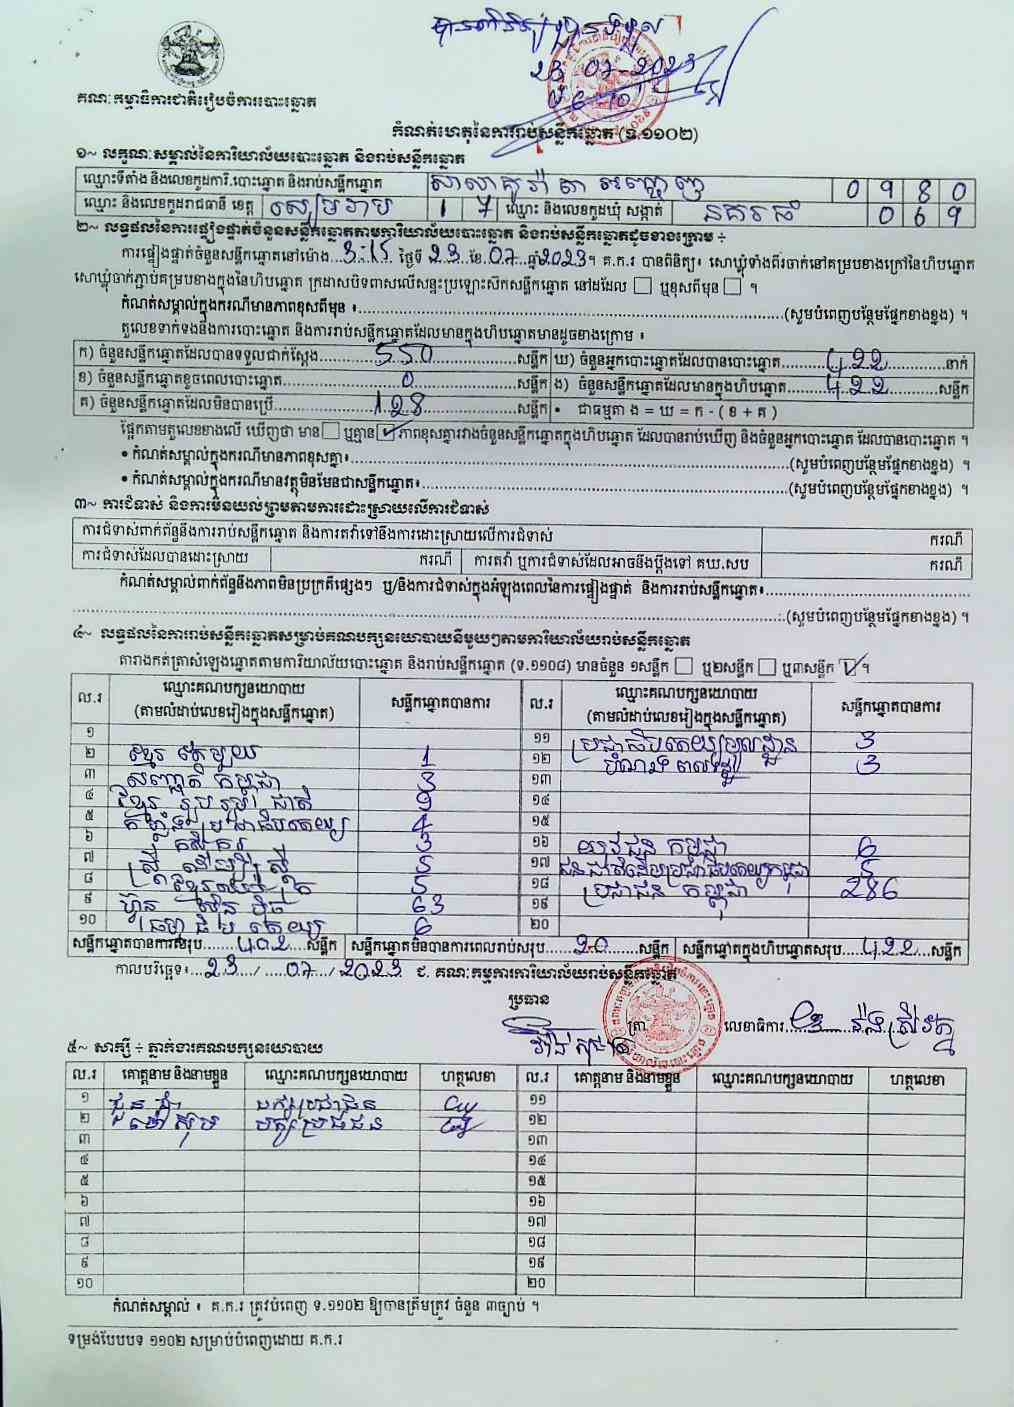 បានពិនិត្យ ត្រឹមត្រូវ
23 07-2023
គណៈកម្មាធិការជាតិរៀបចំការបោះឆ្នោត
កំណត់ហេតុនៃការរាប់សន្លឹកឆ្នោត (ទ.១១០២)
១~ លក្ខណៈសម្គាល់នៃការិយាល័យបោះឆ្នោត និងរាប់សន្លឹកឆ្នោត
ឈ្មោះទីតាំង និងលេខកូដការិ.បោះឆ្នោត និងរាប់សន្លឹកឆ្នោត 0 9 8 0
ឈ្មោះ និងលេខកូដរាជធានី ខេត្ត សៀមរាប 1 7 ឈ្មោះ និងលេខកូដឃុំ សង្កាត់ នគរធំ 0 6 9
២~ លទ្ធផលនៃការផ្ទៀងផ្ទាត់ចំនួនសន្លឹកឆ្នោតតាមការិយាល័យបោះឆ្នោត និងរាប់សន្លឹកឆ្នោតដូចខាងក្រោម ÷
ការផ្ទៀងផ្ទាត់ចំនួនសន្លឹកឆ្នោតនៅម៉ោង...3:15 ថ្ងៃទី 23 ខែ.07..ឆ្នាំ2023។ គ.ក.រ បានពិនិត្យ៖ សោឃ្លុំទាំងពីរចាក់នៅគម្របខាងក្រៅនៃហិបឆ្នោត
សោឃ្លុំចាក់ភ្ជាប់គម្របខាងក្នុងនៃហិបឆ្នោត ក្រដាសបិទពាសលើសន្ទះប្រឡោះស៊កសន្លឹកឆ្នោត នៅដដែល ☐ ឬខុសពីមុន ☐ ។
កំណត់សម្គាល់ក្នុងករណីមានភាពខុសពីមុន ៖......(សូមបំពេញបន្ថែមផ្នែកខាងខ្នង) ។
តួលេខទាក់ទងនឹងការបោះឆ្នោត និងការរាប់សន្លឹកឆ្នោតដែលមានក្នុងហិបឆ្នោតមានដូចខាងក្រោម ៖
ក) ចំនួនសន្លឹកឆ្នោតដែលបានទទួលជាក់ស្តែង......550......សន្លឹក ឃ) ចំនួនអ្នកបោះឆ្នោតដែលបានបោះឆ្នោត......422......នាក់
ខ) ចំនួនសន្លឹកឆ្នោតខូចពេលបោះឆ្នោត......0......សន្លឹក ង) ចំនួនសន្លឹកឆ្នោតដែលមានក្នុងហិបឆ្នោត......422......សន្លឹក
គ) ចំនួនសន្លឹកឆ្នោតដែលមិនបានប្រើ......128......សន្លឹក • ជាធម្មតា ង = ឃ = ក - ( ខ + គ )
ផ្អែកតាមតួលេខខាងលើ ឃើញថា មាន ☐ ឬគ្មាន ☑ ភាពខុសគ្នារវាងចំនួនសន្លឹកឆ្នោតក្នុងហិបឆ្នោត ដែលបានរាប់ឃើញ និងចំនួនអ្នកបោះឆ្នោត ដែលបានបោះឆ្នោត ។
• កំណត់សម្គាល់ក្នុងករណីមានភាពខុសគ្នា៖......(សូមបំពេញបន្ថែមផ្នែកខាងខ្នង) ។
• កំណត់សម្គាល់ក្នុងករណីមានវត្ថុមិនមែនជាសន្លឹកឆ្នោត៖......(សូមបំពេញបន្ថែមផ្នែកខាងខ្នង) ។
៣~ ការជំទាស់ និងការមិនយល់ព្រមតាមការដោះស្រាយលើការជំទាស់
ការជំទាស់ពាក់ព័ន្ធនឹងការរាប់សន្លឹកឆ្នោត និងការតវ៉ាទៅនឹងការដោះស្រាយលើការជំទាស់ ករណី
ការជំទាស់ដែលបានដោះស្រាយ ករណី ការតវ៉ា ឬការជំទាស់ដែលអាចនឹងប្តឹងទៅ គឃ.សប ករណី
កំណត់សម្គាល់ពាក់ព័ន្ធនឹងភាពមិនប្រក្រតីផ្សេងៗ ឬ/និងការជំទាស់ក្នុងអំឡុងពេលនៃការផ្ទៀងផ្ទាត់ និងការរាប់សន្លឹកឆ្នោត៖......
......(សូមបំពេញបន្ថែមផ្នែកខាងខ្នង) ។
៤~ លទ្ធផលនៃការរាប់សន្លឹកឆ្នោតសម្រាប់គណបក្សនយោបាយនីមួយៗតាមការិយាល័យរាប់សន្លឹកឆ្នោត
តារាងកត់ត្រាសំឡេងឆ្នោតតាមការិយាល័យបោះឆ្នោត និងរាប់សន្លឹកឆ្នោត (ទ.១១០៨) មានចំនួន ១សន្លឹក ☐ ឬ២សន្លឹក ☐ ឬ៣សន្លឹក ☑ ។
ល.រ ឈ្មោះគណបក្សនយោបាយ (តាមលំដាប់លេខរៀងក្នុងសន្លឹកឆ្នោត) សន្លឹកឆ្នោតបានការ ល.រ ឈ្មោះគណបក្សនយោបាយ (តាមលំដាប់លេខរៀងក្នុងសន្លឹកឆ្នោត) សន្លឹកឆ្នោតបានការ
១ ខ្មែរ តែមួយ 1 ១១ ប្រជាធិបតេយ្យមូលដ្ឋាន 3
២ សញ្ជាតិ កម្ពុជា 3 ១២ 3
៣ ខ្មែរ រួបរួម ជាតិ 9 ១៣
៤ កម្លាំងប្រជាធិបតេយ្យ 4 ១៤
៥ កសិករ 3 ១៥
៦ ស្ត្រី ដើម្បីស្ត្រី 5 ១៦ យុវជន កម្ពុជា 6
៧ ខ្មែរ 5 ១៧ ជនជាតិដើមប្រជាធិបតេយ្យកម្ពុជា 5
៨ ហ្វ៊ុន ស៊ិន ប៉ិច 63 ១៨ ប្រជាជន កម្ពុជា 286
៩ ធម្មាធិបតេយ្យ 6 ១៩
១០ ២០
សន្លឹកឆ្នោតបានការសរុប......402......សន្លឹក សន្លឹកឆ្នោតមិនបានការពេលរាប់សរុប......20......សន្លឹក សន្លឹកឆ្នោតក្នុងហិបឆ្នោតសរុប......422......សន្លឹក
កាលបរិច្ឆេទ៖...23.../...07.../ 2023 ជ. គណៈកម្មការការិយាល័យរាប់សន្លឹកឆ្នោត
ប្រធាន
ត្រា លេខាធិការ
៥~ សាក្សី ÷ ភ្នាក់ងារគណបក្សនយោបាយ
ល.រ គោត្តនាម និងនាមខ្លួន ឈ្មោះគណបក្សនយោបាយ ហត្ថលេខា ល.រ គោត្តនាម និងនាមខ្លួន ឈ្មោះគណបក្សនយោបាយ ហត្ថលេខា
១ បក្សប្រជាជន ១១
២ បក្សប្រជាជន ១២
៣ ១៣
៤ ១៤
៥ ១៥
៦ ១៦
៧ ១៧
៨ ១៨
៩ ១៩
១០ ២០
កំណត់សម្គាល់ ៖ គ.ក.រ ត្រូវបំពេញ ទ.១១០២ ឱ្យបានត្រឹមត្រូវ ចំនួន ៣ច្បាប់ ។
ទម្រង់បែបបទ ១១០២ សម្រាប់បំពេញដោយ គ.ក.រ